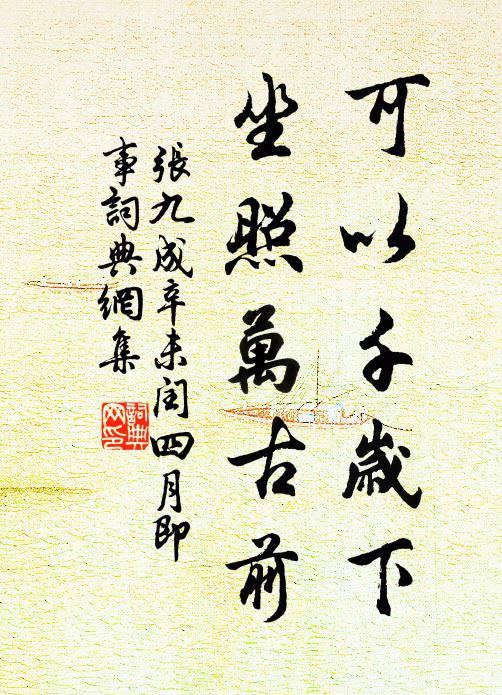 可以千歲下
坐照萬古前
張九成辛未閏四月即
事詞典網集
詞典
网印